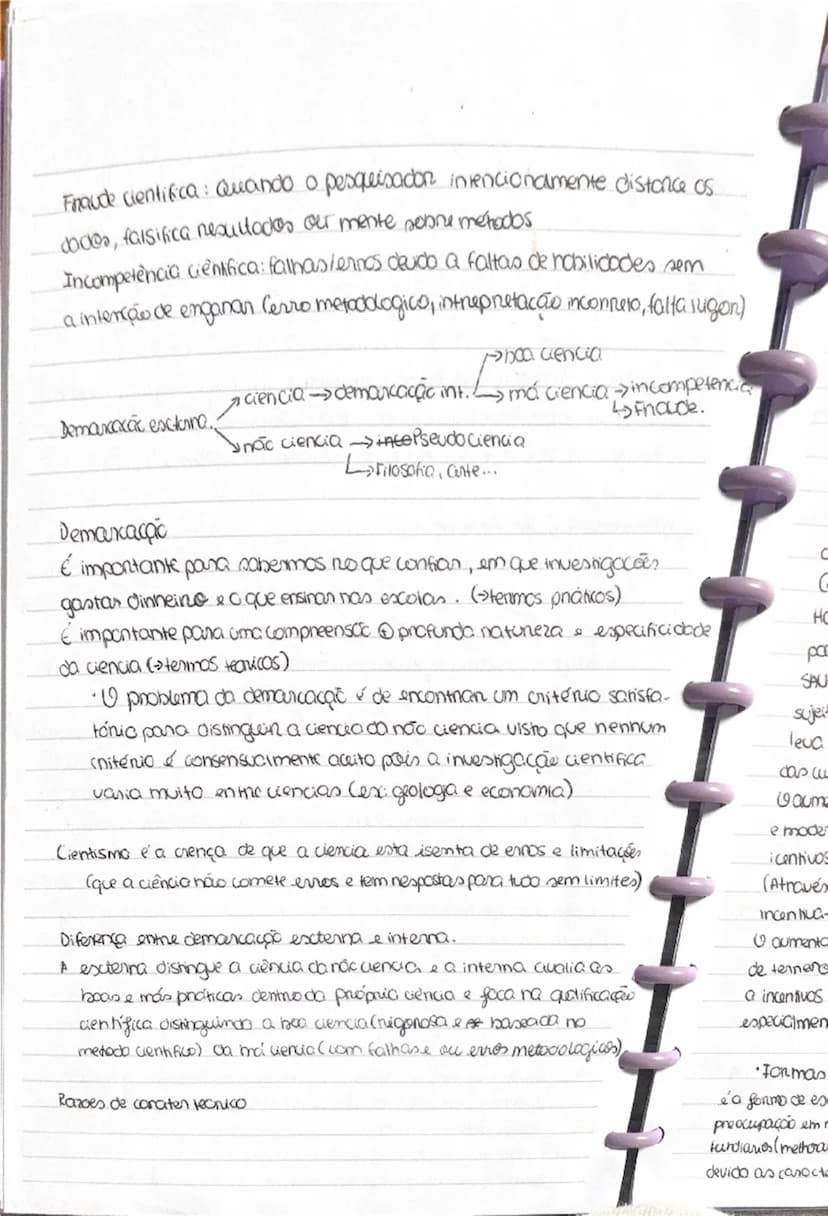 Fraude cientifica: Quando o pesquisador intencionalmente distorce os
dados, falsifica resultados ou mente sobre métodos
Incompetência ciêntifica: falhas/erros devido a faltas de habilidades sem
a intenção de enganar (erro metodologico, intrepretação incorreto, falta rigor)
→boa ciencia
→ciencia →demarcação int. →má ciencia →incompetencia
Demarcação esxterna. ↳Fraude.
→não ciencia →Pseudociencia
↳Filosofia, arte...
Demarcação
É importante para sabermos no que confiar, em que investigações
gastar dinheiro e o que ensinar nas escolas. (→termos práticos)
É importante para uma compreensão ⊕ profunda natureza e especificidade
da ciencia (→termos teoricos)
· O problema da demarcação é de encontrar um critério satisfa-
tório para distinguir a ciencia da não ciencia visto que nenhum
critério é consensualmente aceito pois a investigação cientifica
varia muito entre ciencias (ex: geologia e economia)
Cientismo é a crença de que a ciencia esta isemta de erros e limitações
(que a ciência não comete erros e tem respostas para tudo sem limites)
Diferença entre demarcação esxterna e interna.
A esxterna distingue a ciência da não ciencia e a interna avalia as
boas e más práticas dentro da própria ciência e foca na qualificação
cientifica distinguindo a boa ciencia (rigorosa e baseada no
metodo cientifico) da má ciencia (com falhas e ou erros metodologicos)
Razoes de carater tecnico
HO
SAU
sujei
leva
das cu
O aum
e moder
icentivos
(Através
incentiva-
O aumento
de terreno
a incentivos
especialmen
·Formas
é a forma de es
preocupação em
(melhora
devido as caracte